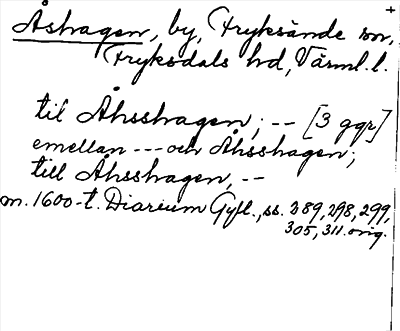 Åshagen, by, Fryksände sn,
Fryksdals hd, Värml. l.
till Åhsshagen; -- [3 ggr]
emellan --- och Åhsshagen;
till Åhsshagen, --
m. 1600-t. Diarium Gyll., ss. 289, 298, 299,
305, 311. orig.